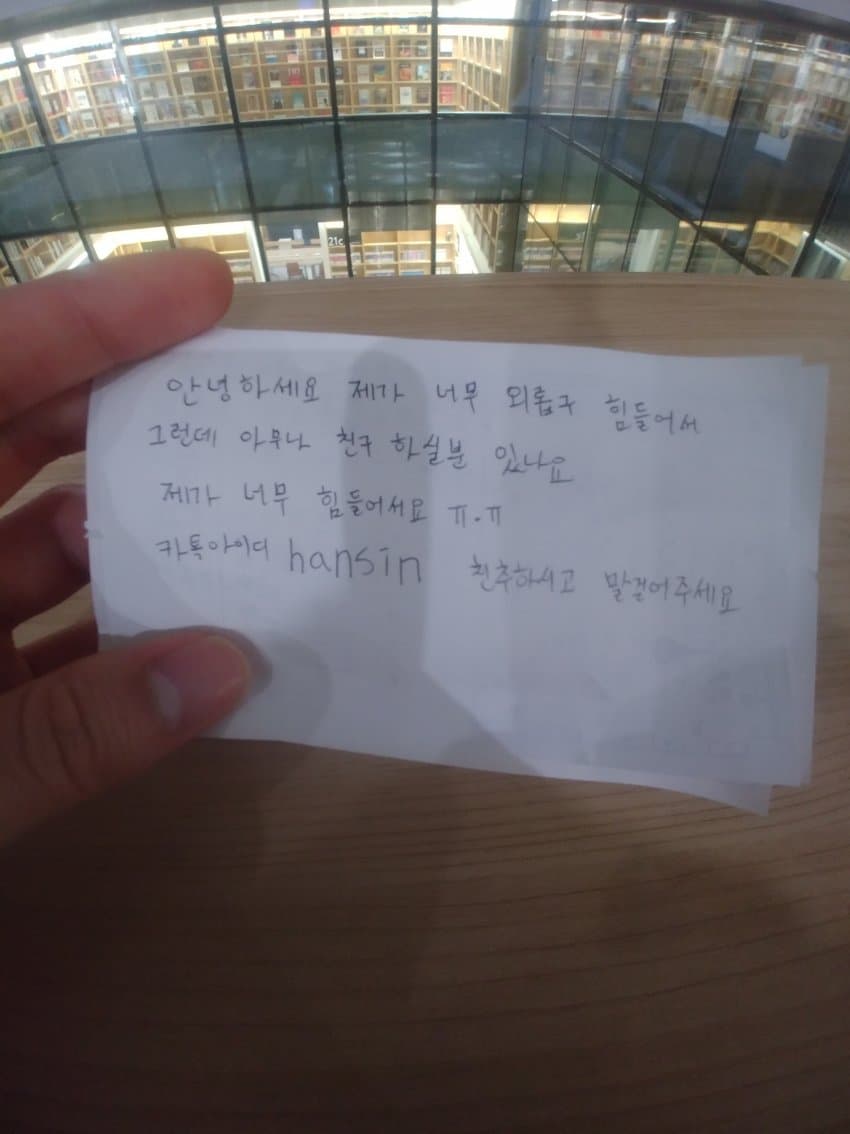 21c
안녕하세요 제가 너무 외롭구 힘들어서
그런데 아무나 친구 하실분 있나요
제가 너무 힘들어서요 ㅠ.ㅠ
카톡아이디 hansin 친추하시고 말걸어주세요